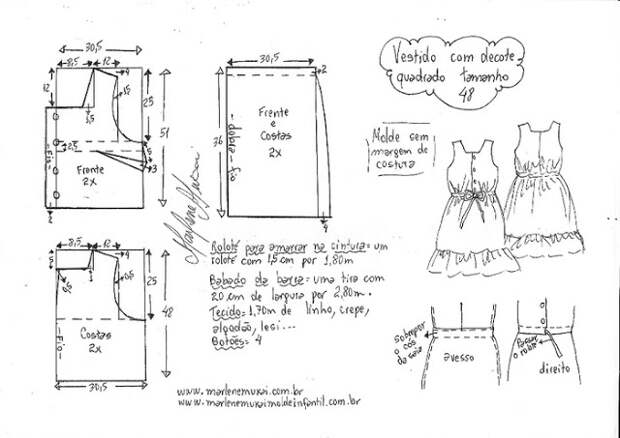 Vestido com decote
quadrado tamanho
48
Molde sem
margem de
costura
30,5
8,5
12
4
12
1,5
25
51
2,5
-Fio-
5
3
Frente
2x
2
30,5
2
36
-dobra-fio
Frente
e
Costas
2x
Marlene Mukai
Rolotê para amarrar na cintura= um
rolotê com 1,5 cm por 1,80m
Babado da barra= uma tira com
20 cm de largura por 2,80m.
Tecido= 1,70m de linho, crepe,
algodão, lesi...
Botões= 4
8,5
12
4
25
48
-Fio-
Costas
2x
30,5
Sobrepor
o cós
da saia
avesso
Passar
o rolotê
direito
www.marlenemukai.com.br
www.marlenemukaimoldeinfantil.com.br